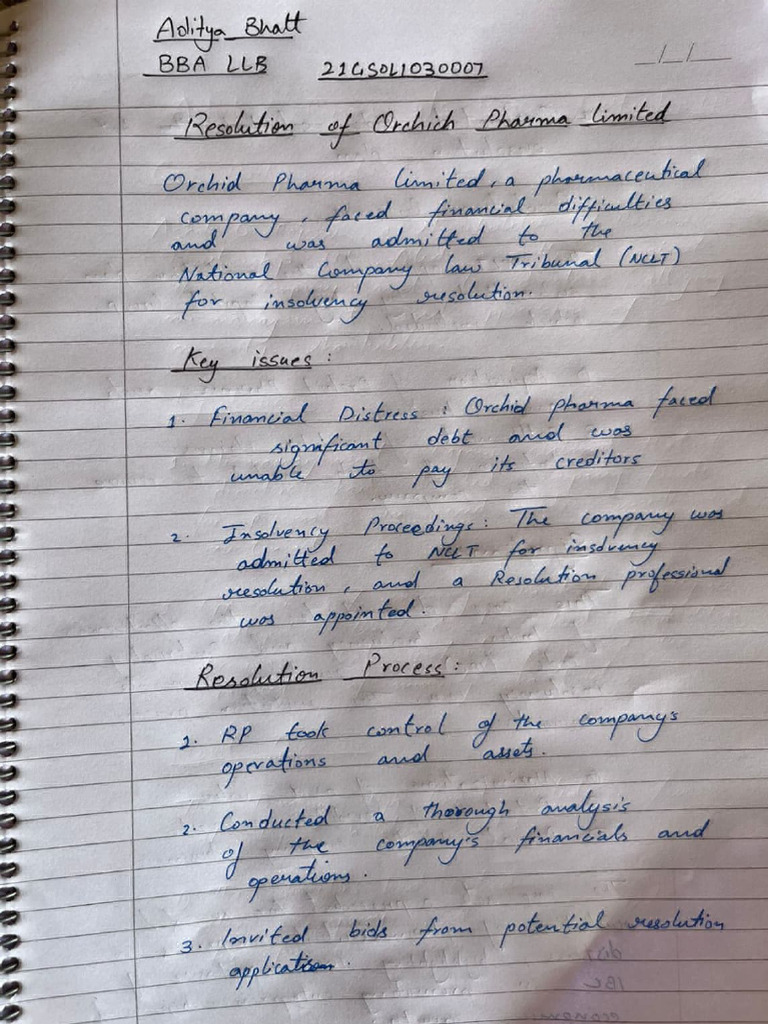 Aditya Bhatt
BBA LLB 21GSOL1030007
_/_/_
Resolution of Orchich Pharma limited
Orchid Pharma limited, a pharmaceutical
company, faced financial difficulties
and was admitted to the
National Company law Tribunal (NCLT)
for insolvency resolution.
Key issues :
1. Financial Distress : Orchid pharma faced
significant debt and was
unable to pay its creditors
2. Insolvency Proceedings : The company was
admitted to NCLT for insolvency
resolution, and a Resolution professional
was appointed.
Resolution Process :
1. RP took control of the company's
operations and assets.
2. Conducted a thorough analysis
of the company's financials and
operations.
3. Invited bids from potential resolution